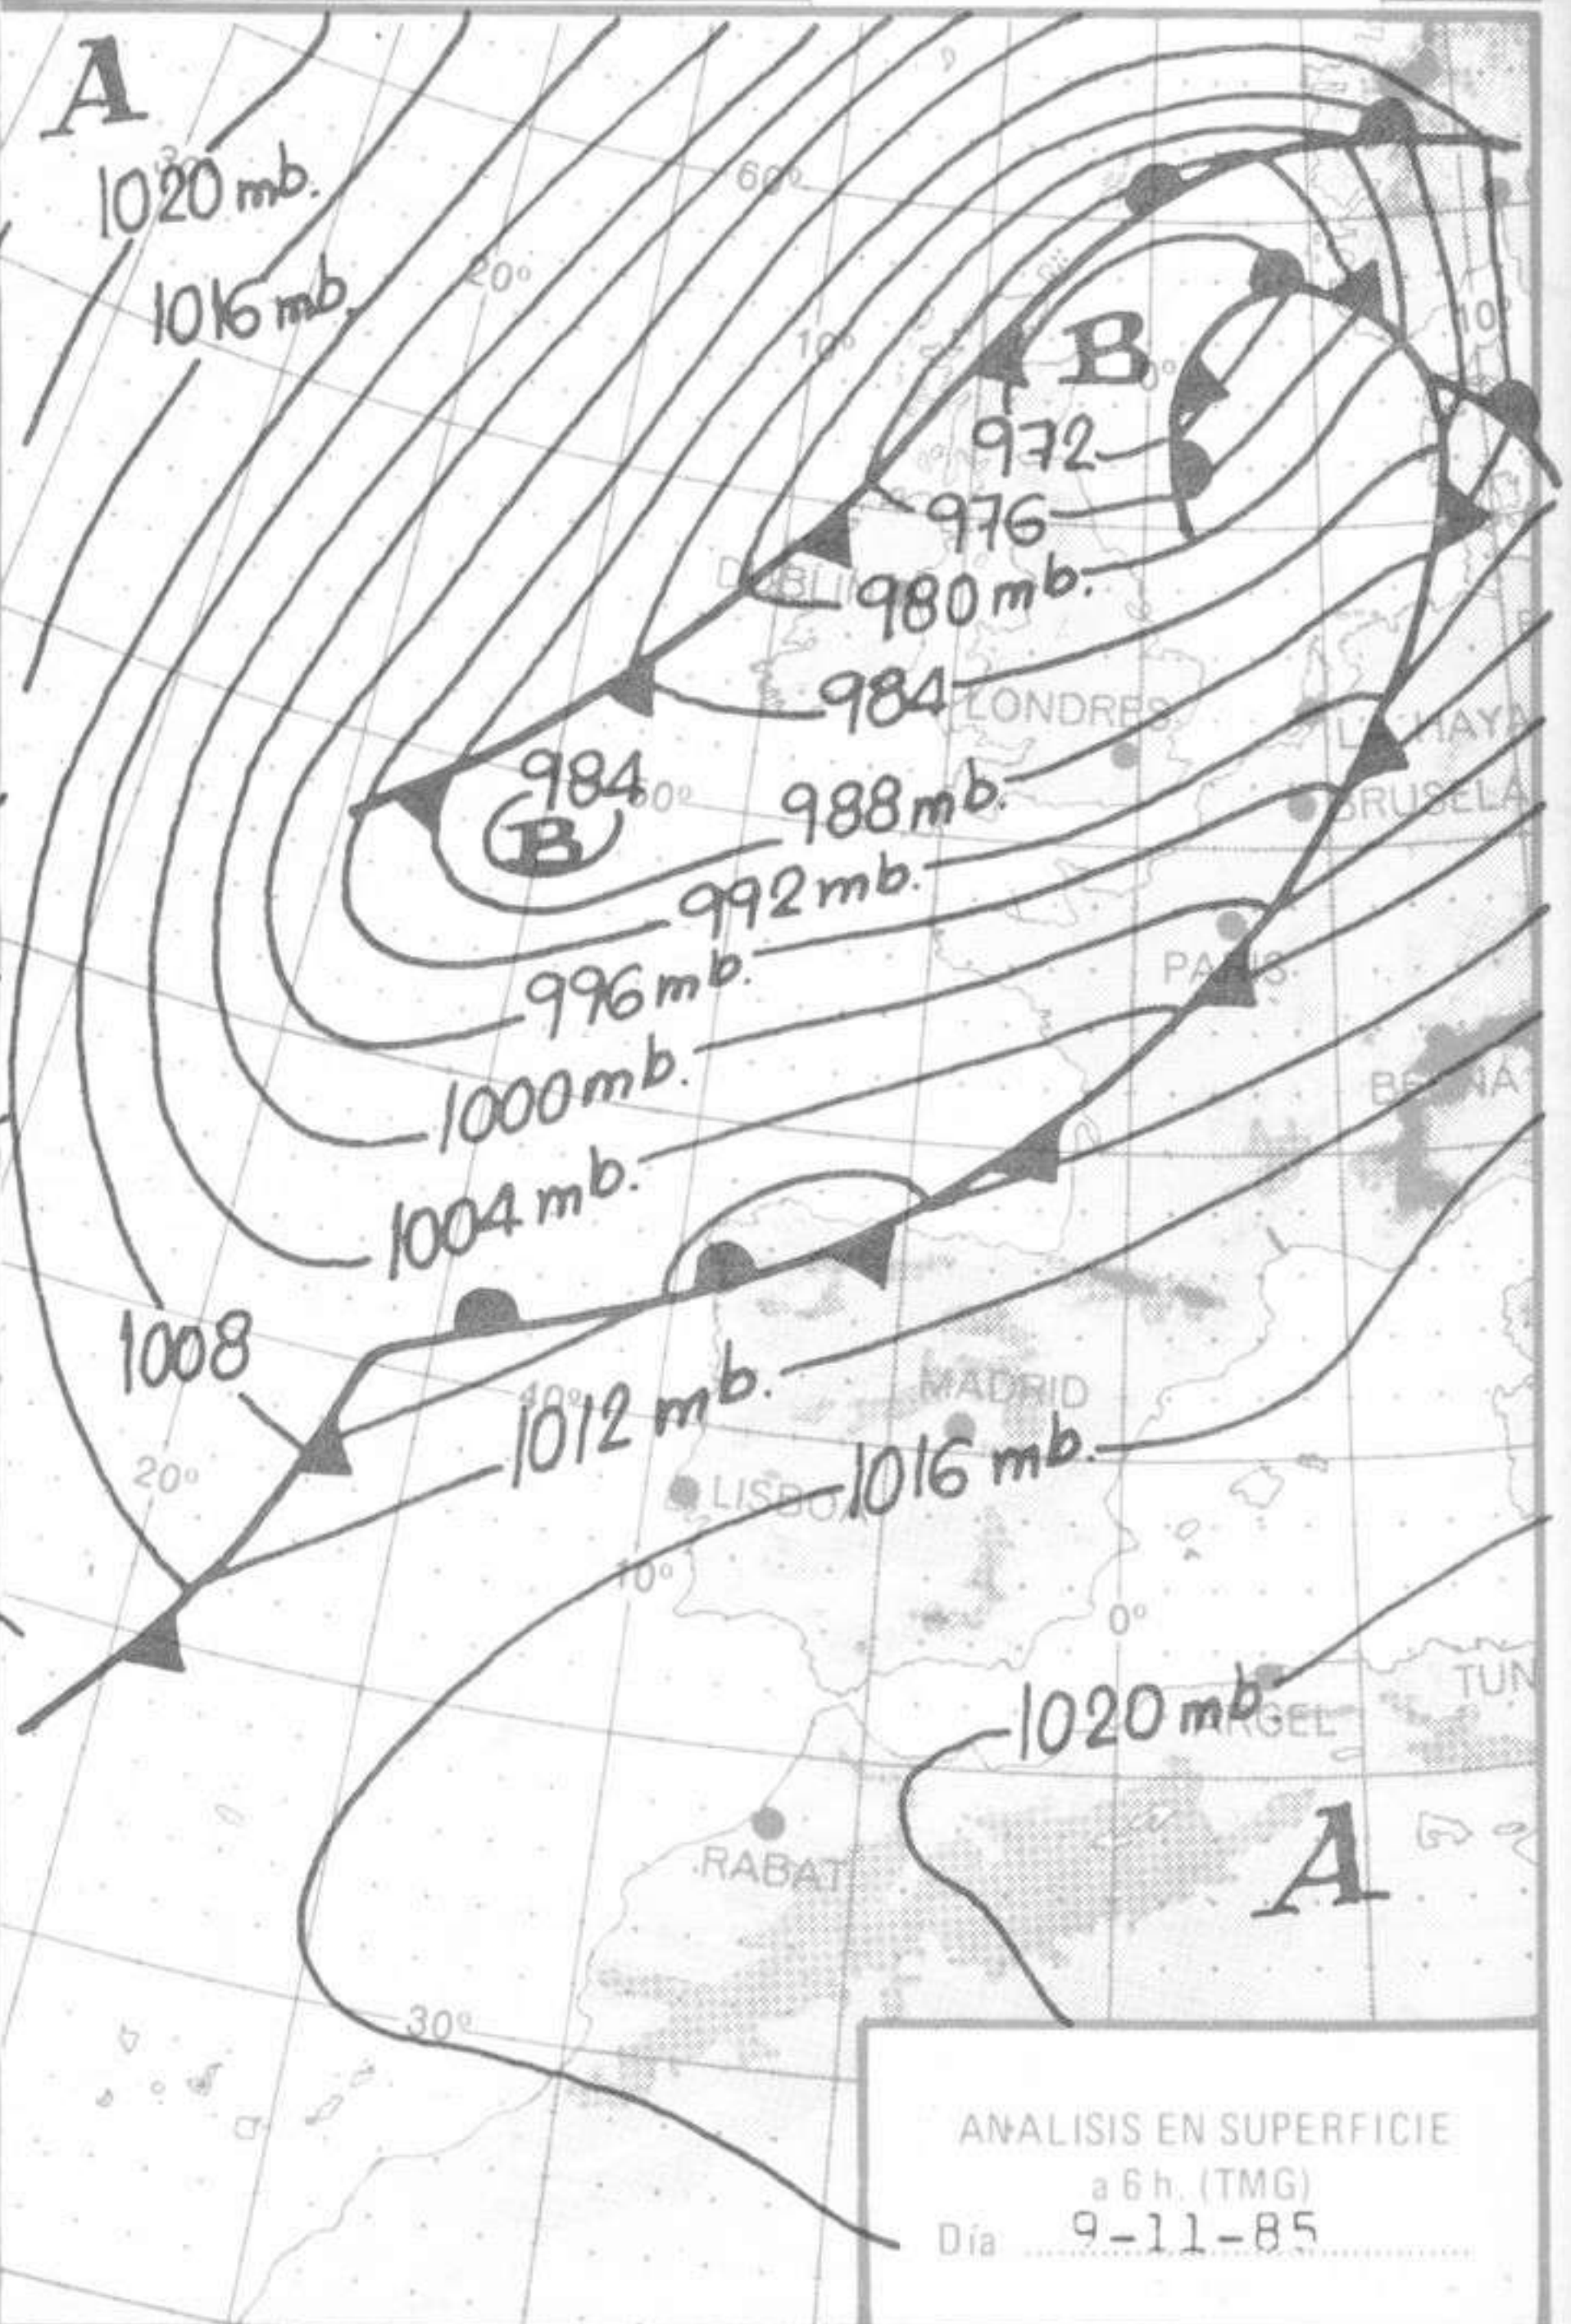 A
1020 mb.
60º
20º
1016 mb.
10º
10º
B
0º
972
976
DUBLIN
980 mb.
984
LONDRES
LA HAYA
984
50º
988 mb.
BRUSELA
B
992 mb.
996 mb.
PARIS
1000 mb.
BERNA
1004 mb.
1008
40º
1012 mb.
MADRID
1016 mb.
20º
LISBOA
10º
0º
1020 mb.
ARGEL
TUN
A
RABAT
30º
ANALISIS EN SUPERFICIE
a 6 h. (TMG)
Día 9-11-85